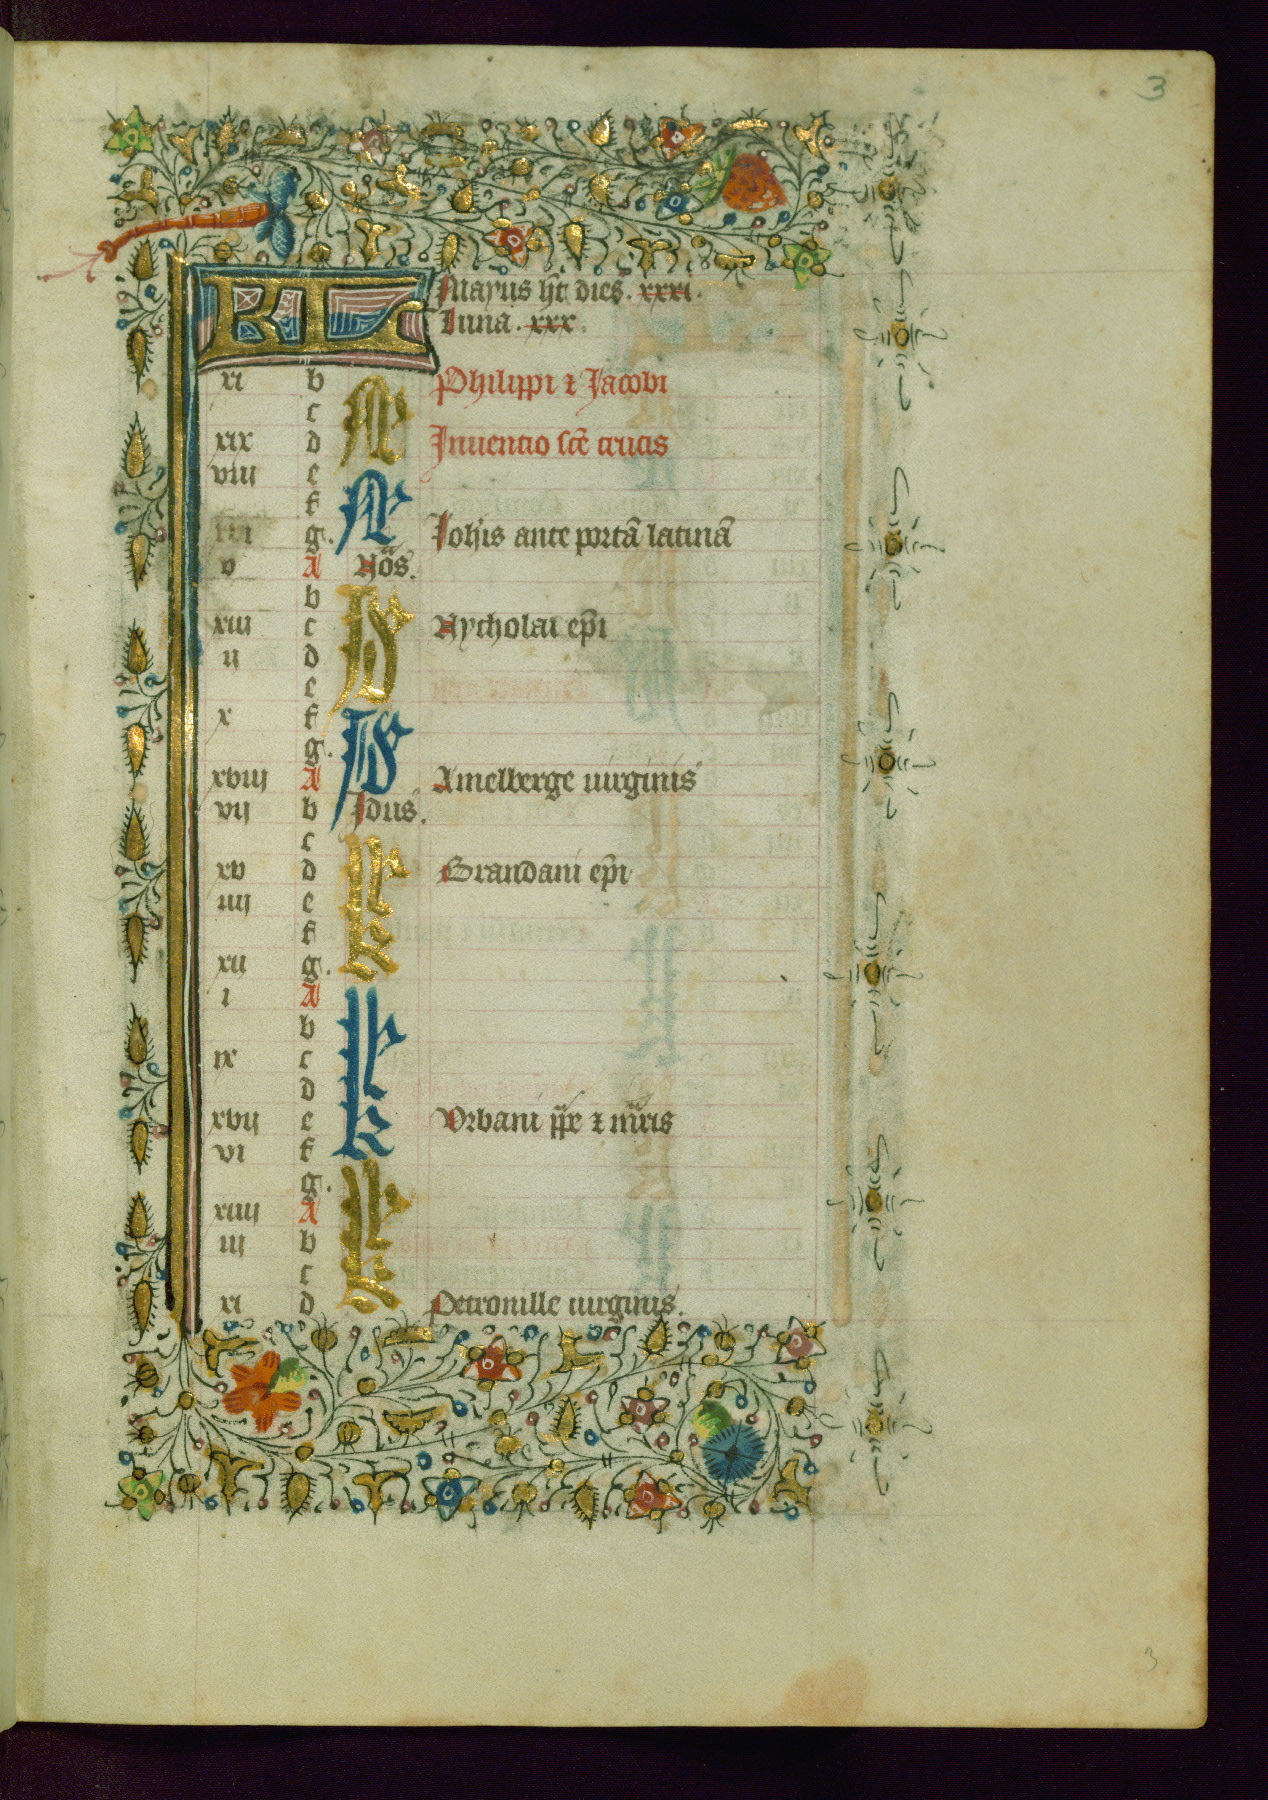 3
KL Mayus h̄t dies. xxxi.
Luna. xxx.
xi b N Philippi ⁊ Jacobi
c
xix d Inuentio sc̄e crucis
viii e
f N
g. Joh̄is ante portā latinā
v A Nōs.
b
xiii c Nycholai ep̄i
ii d
e
x f
g.
xviii A Amelberge uirginis
vii b Idus.
c
xv d Brandani ep̄i
iiii e
f
xii g.
i A
b
ix c
d
xvii e Vrbani pp̄e ⁊ mr̄is
vi f
g.
xiiii A
iii b
c
xi d Petronille uirginis.
3